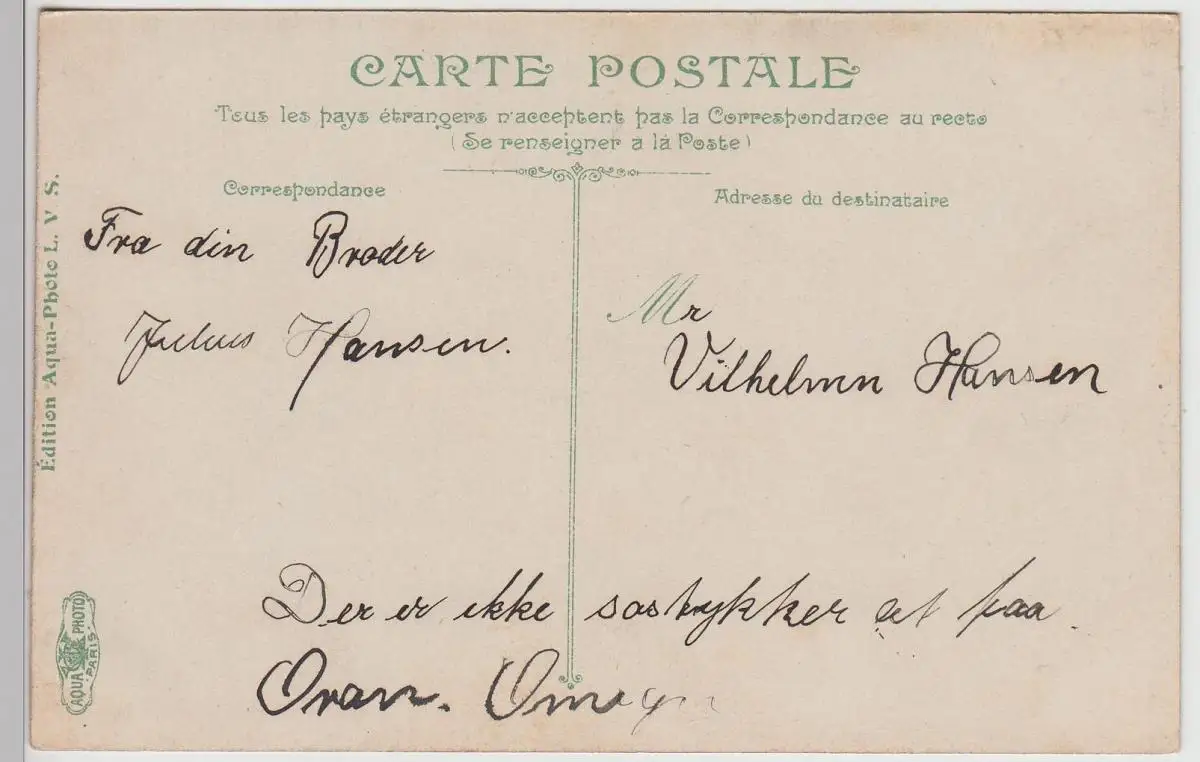 CARTE POSTALE
Tous les pays étrangers n'acceptent pas la Correspondance au recto
(Se renseigner à la Poste)
Correspondance
Adresse du destinataire
Fra din Broder
Julius Hansen.
Mr
Vilhelmn Hansen
Der er ikke at faa
Oran.
Édition Aqua-Photo L. V S.
AQUA PHOTO
PARIS